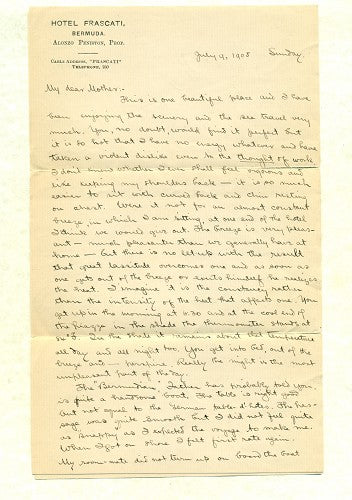 HOTEL FRASCATI,
BERMUDA.
ALONZO PENISTON, PROP.
CABLE ADDRESS, "FRASCATI"
TELEPHONE,
July 9, 1908 Sunday
My dear Mother:-
This is one beautiful place and I have
been enjoying the scenery and the sea travel very
much. You, no doubt, would find it perfect but
it is so hot that I have no energy whatever and have
taken a violent dislike even to the thought of work
I don't know whether I ever shall feel vigorous and
like keeping my shoulders back - it is so much
easier to sit with curved back and chin resting
on chest. Were it not for an almost constant
breeze, in which I am sitting, at one end of the hotel
I think we would give out. The breeze is very pleas-
ant - much pleasanter than we generally have at
home - but there is no let up with the result
that great lassitude overcomes one and as soon as
one gets out of the breeze or exerts himself he realizes
the heat. I imagine it is the constancy rather
than the intensity of the heat that affects one. You
get up in the morning at 4.30 and at the cool end of
the piazza in the shade the thermometer stands at
In the shade it remains about that temperature
all day and all night too. You get into bed, out of the
breeze and - perspire. Really the night is the most
unpleasant part of the day.
The "Bermudian" Father has probably told you
is quite a handsome boat. The table is right good
but not equal to the German table d'hotes. The pas-
sage was quite smooth but I did not feel quite
as snappy as I expected the voyage to make me.
When I got on shore I felt first rate again.
My room-mate did not turn up on board the boat